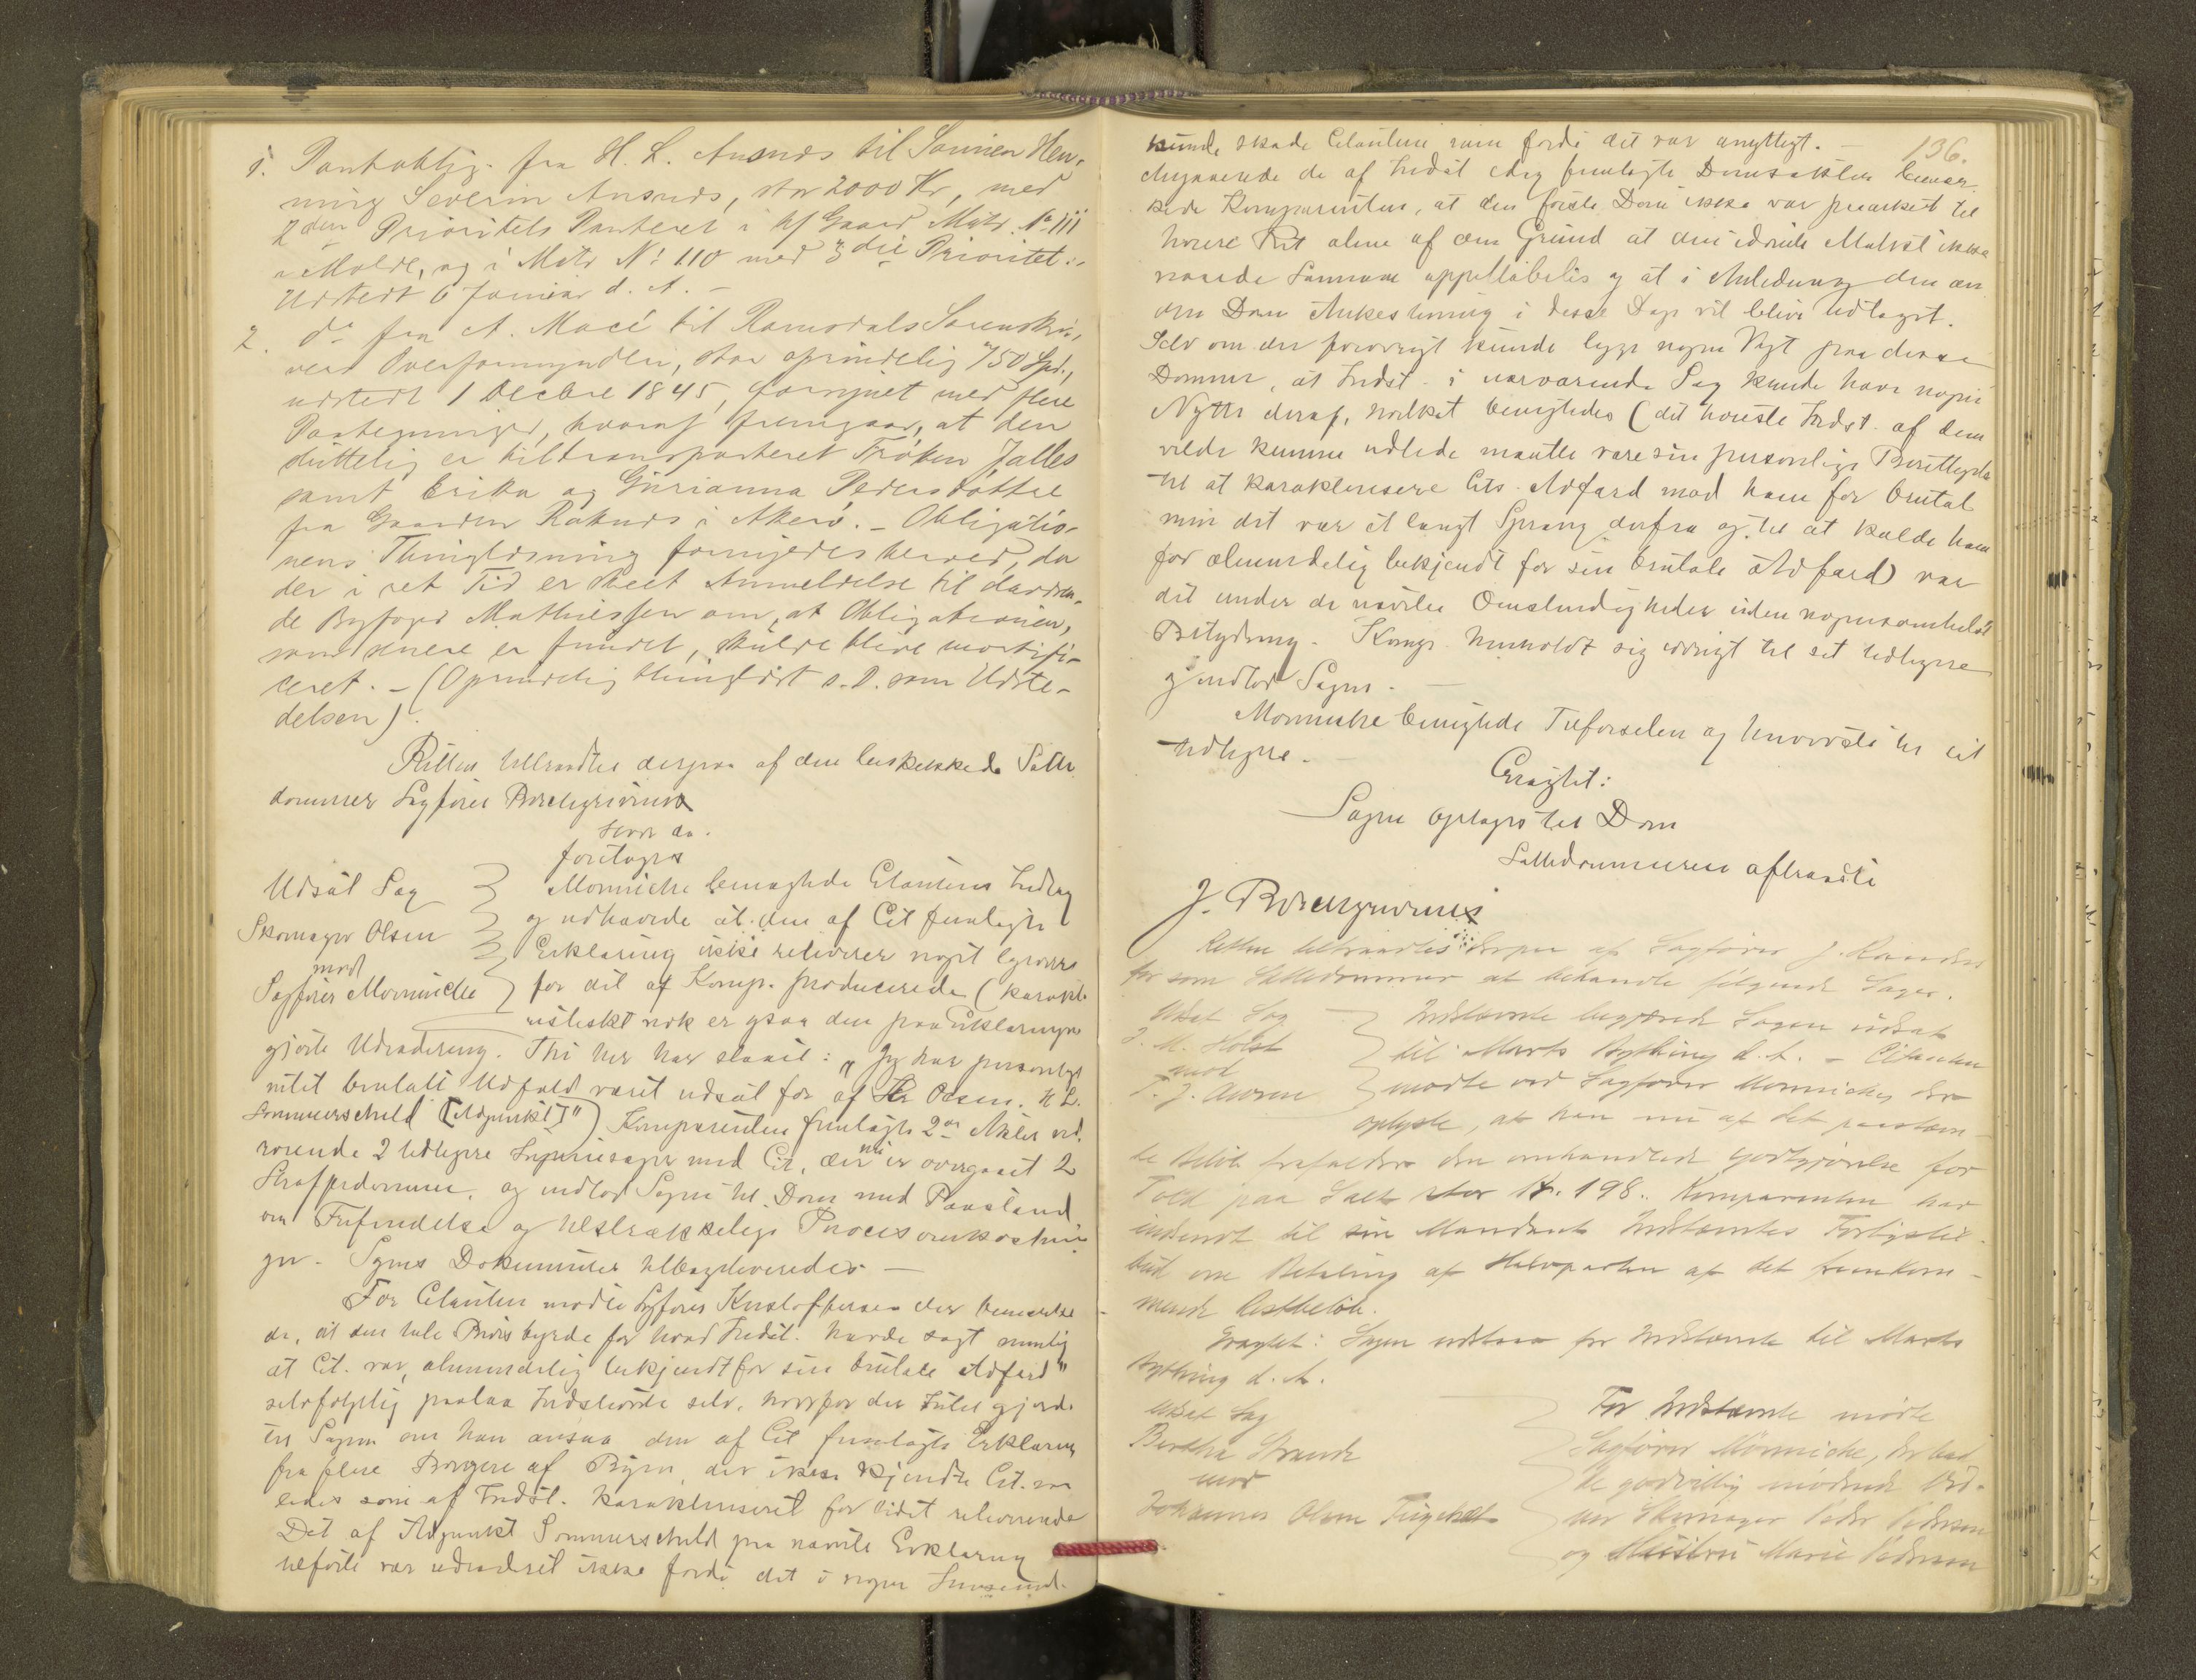 1. Pantoblig. fra H. L. Ansnes til Sønnen Hen-
ning Severin Ansnes, stor 2000 Kr, med
2den Prioritets Panteret i af Gaard Matr. No 111
i Molde, og i Matr No 110 med 3die Prioritet.
Udstedt 6 Januar d. A. –
2. do fra A. Macé til Romsdals Sorenskri-
veri Overformynderi, stor oprindelig 750 Spd.,
udstedt 1 Decbre 1845, forsynet med flere
Paategninger, hvoraf fremgaar, at den
sluttelig er tiltransporteret Frøken Jalles
samt Erika og Gurianna Pedersdøttre
fra Gaarden Røknes i Akerø. – Obligatio-
nens Thinglæsning fornyedes herved, da
der i ret Tid er skeet Anmeldelse til daværen-
de Byfoged Mathiessen om, at Obligationen,
som senere er fundet, skulde blive mortifi-
ceret. – (Oprindelig thinglæst s. D. som Udste-
delsen).
Retten tiltraadtes derpaa af den beskikkede Sætte
dommer Sagfører Borchgrevink
hvor da
foretoges
Udsat Sag
Skomager Olsen
mod
Sagfører Monniche
Monniche benægtede Citantens Indlæg
og udhævede at den af Cit fremlagte
Erklæring ikke releverer noget ligeoverfor
for det af Komp. producerede (karakte
ristiskt nok er ogsaa den paa Erklæringen
gjorte Udradering. Thi her har staaet: "Jeg har personlig
intet brutalt Udfald været udsat for af Hr Olsen. H L.
Sommerschield [Adjunkt]") Komparenten fremlagte 2de Akter ved-
rørende 2 tidligere Injuriesager mod Cit, der nu er overgaaet 2
Straffedomme, og indlod Sagen til Dom med Paastand
om Frifindelse og tilstrækkelige Procesomkostnin
ger. Sagens Dokumenter tilbageleveredes –
For Citanten mødte Sagfører Kristoffersen der bemærke
de, at den hele Bevisbyrde for hvad Indst. havde sagt nemlig
at Cit. var "almindelig bekjendt for sin brutale Adfærd"
selvfølgelig paalaa Indstævnte selv, hvorfor det Intet gjorde
til Sagen om han ansaa den af Cit fremlagte Erklæring
fra flere Borgere af Byen, der ikke kjendte Cit. saa
ledes som af Indst. karakteriseret for lidet releverende
Det af Adjunkt Sommerschield paa nævnte Erklæring
tilførte var udraderet ikke fordi det i nogen Henseende
136.
kunde skade Citanten men fordi det var unyttigt. –
Angaaende de af Indst idag fremlagte Domsakter bemær-
kede Komparenten, at den første Dom ikke var paaanket til
høiere Ret alene af den Grund at den idømte Mulkt ikke
naaede Summa appellabilis og at i Anledning den an
den Dom Ankestevning i disse Dage vil blive udtaget.
Selv om der forøvrigt kunde lægges nogen Vægt paa disse
Domme, at Indst. i nærværende Sag kunde have nogen
Nytte deraf, hvilket benægtedes (det høieste Indst. af dem
vilde kunne udlede maatte være sin personlige Berettigelse
til at karakterisere Cits. Adfærd mod ham for brutal
men det var et langt Sprang derfra og til at kalde ham
for almindelig bekjendt for sin brutale Adfærd) var
det under de nævnte Omstændigheder uden nogensomhelst
Betydning. Komp. henholdt sig øvrigt til sit tidligere
og indlod Sagen. –
Monniche benægtede Tilførselen og henviste til sit
tidligere. –
Eragtet:
Sagen optages til Dom
Sættedommeren aftraadte
J. Borchgrevink
Retten tiltraadtes derpaa af Sagfører J.
for som Sættedommer at behandle følgende Sager.
Udsat Sag
J. M. Holst
mod
Indstævnte begjærede Sagen udsat
til Marts Bything d. A. – Citanten
mødte ved Sagfører Monniche, der
oplyste, at han nu af det paastævn-
te Beløb frafalder den omhandlede Godtgjørelse for
Told paa Salt stor Kr. 198. Komparenten har
indsendt til sin Mandant Indstævntes Forligstil-
bud om Betaling af Halvparten af det fremkom-
mende Restbeløb.
Eragtet: Sagen udstaar for Indstævnte til Marts
Bything d. A.
Udsat Sag
Berthe Strande
mod
Johannes Olsen
For Indstævnte mødte
Sagfører Monniche, der bad
de godvillig mødende Vid-
ner Skomager Peder Pedersen
og Hustru Marie Pedersen